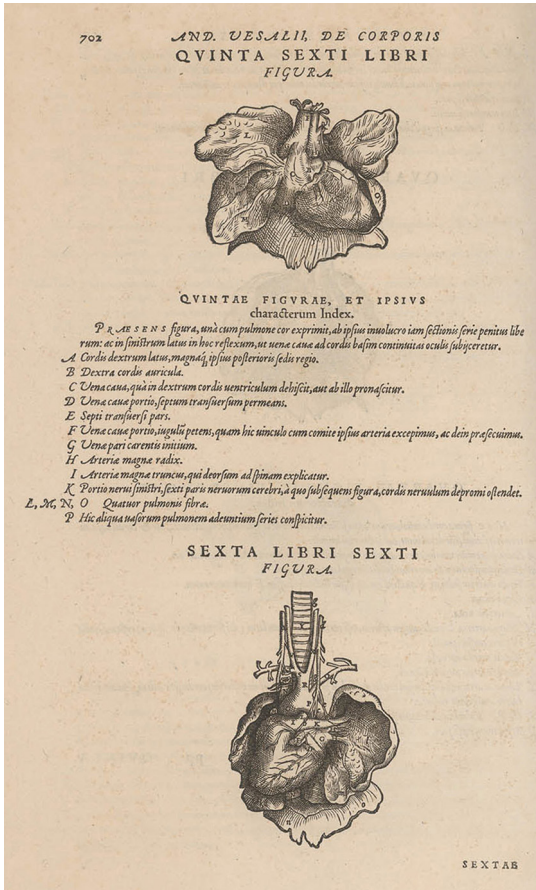 702 AND. VESALII, DE CORPORIS
QVINTA SEXTI LIBRI
FIGURA.
QVINTAE FIGVRAE, ET IPSIVS
characterum Index.
PRAESENS figura, unà cum pulmone cor exprimit, ab ipsius inuolucro iam sectionis serie penitus libe
rum: ac in sinistrum latus in hoc reflexum, ut uenæ cauæ ad cordis basim continuitas oculis subijceretur.
A Cordis dextrum latus, magnaq́; ipsius posterioris sedis regio.
B Dextra cordis auricula.
C Vena caua, quà in dextrum cordis uentriculum dehiscit, aut ab illo pronascitur.
D Venæ cauæ portio, septum transuersum permeans.
E Septi transuersi pars.
F Venæ cauæ portio, iugulũ petens, quam hic uinculo cum comite ipsius arteria excepimus, ac dein præsecuimus.
G Venæ pari carentis initium.
H Arteriæ magnæ radix.
I Arteriæ magnæ truncus, qui deorsum ad spinam explicatur.
K Portio nerui sinistri, sexti paris neruorum cerebri, à quo subsequens figura, cordis neruulum depromi ostendet.
L, M, N, O Quatuor pulmonis fibræ.
P Hic aliqua uasorum pulmonem adeuntium series conspicitur.
SEXTA LIBRI SEXTI
FIGURA.
SEXTAE